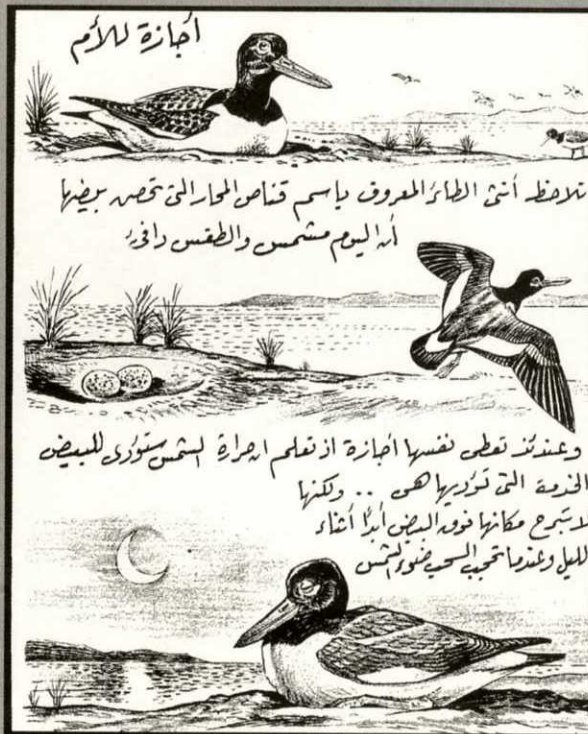 أجازة للأم
تلاحظ أنثى الطائر المعروف باسم قناص المحار التى تحصن بيضها
أن اليوم مشمس والطقس دافئ
وعندئذ تعطى نفسها أجازة اذ تعلم ان حرارة الشمس ستؤدى للبيض
الخدمة التى تؤديها هى .. ولكنها
لا تبرح مكانها فوق البيض أبدًا أثناء
الليل وعندما تحجب السحب ضوء الشمس